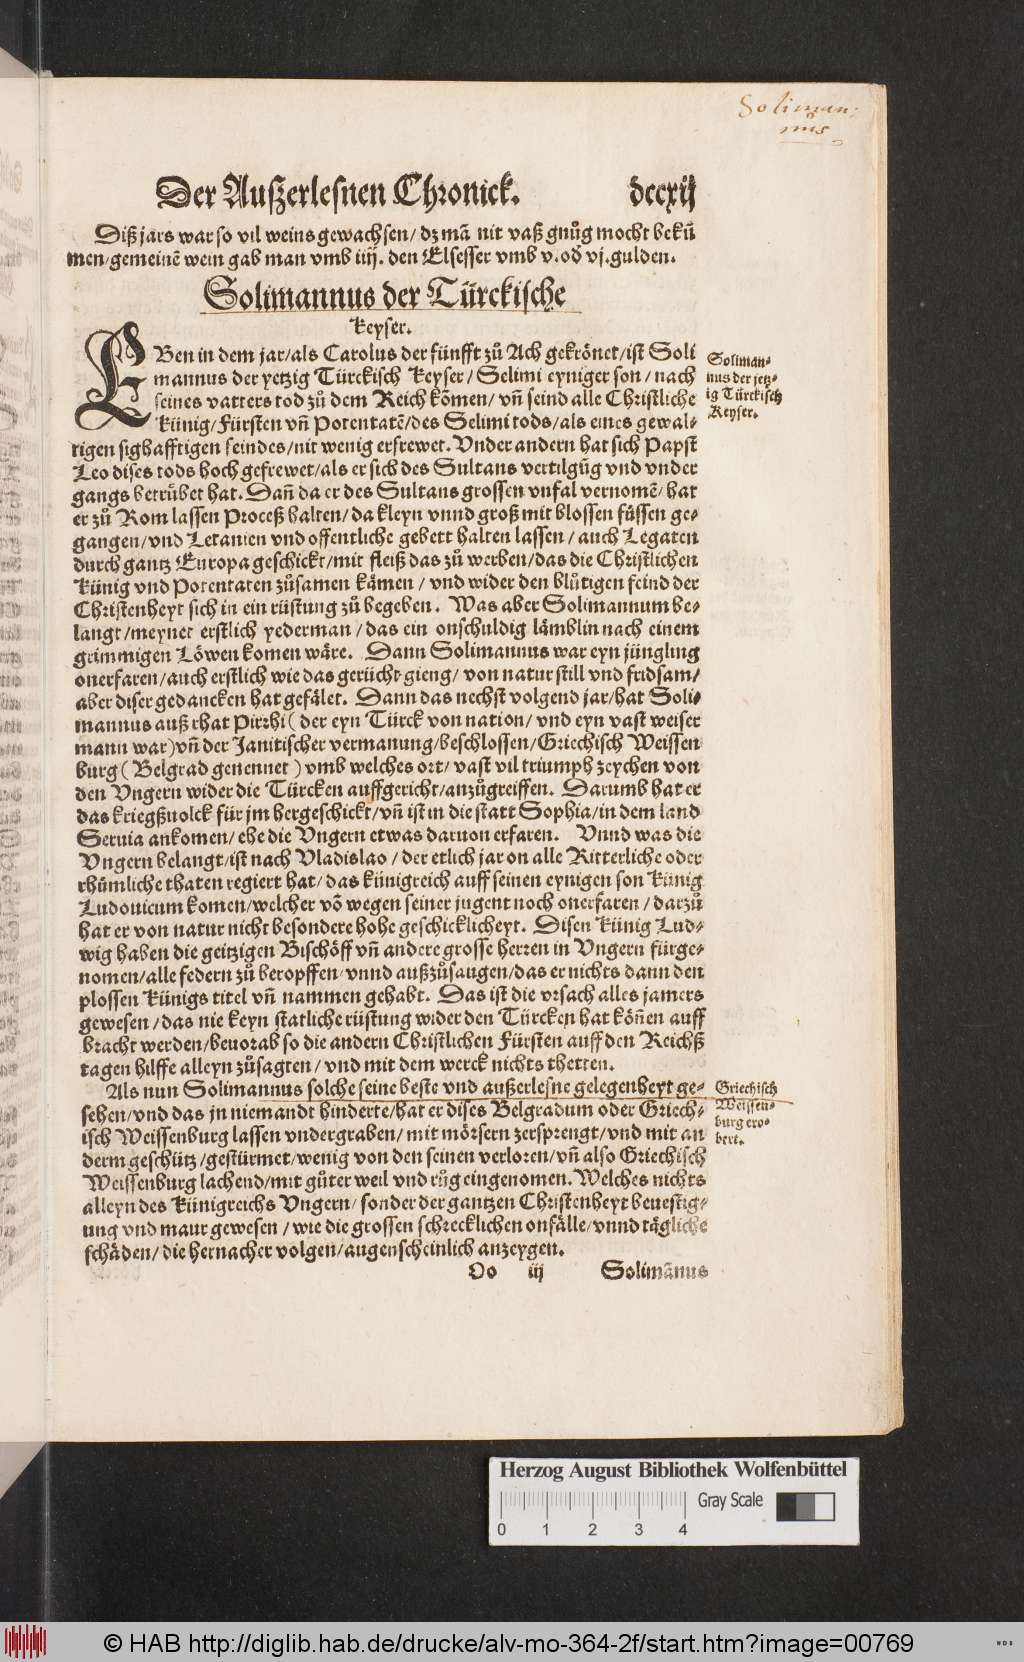 Soliman:
nus
Der Außerlesnen Chronick. dccxij
Diß jars war so vil weins gewachsen/ dz mā nit vaß gnůg mocht bekū
men/gemeinē wein gab man vmb iiij. den Elsesser vmb v. od vj. gulden.
Solimannus der Türckische
Keyser.
EBen in dem jar/als Carolus der fünfft zů Ach gekrönet/ist Soli
mannus der yetzig Türckisch Keyser/ Selimi eyniger son/ nach
seines vatters tod zů dem Reich kōmen/ vñ seind alle Christliche
Künig/ Fürsten vñ Potentatē/des Selimi tods/als eines gewal-
tigen sighafftigen feindes/nit wenig erfrewet. Vnder andern hat sich Papst
Leo dises tods hoch gefrewet/als er sich des Sultans vertilgūg vnd vnder
gangs betrůbet hat. Dañ da er des Sultans grossen vnfal vernomē/ hat
er zů Rom lassen Proceß halten/ da kleyn vnnd groß mit blossen füssen ge-
gangen/ vnd Letanien vnd offentliche gebett halten lassen/ auch Legaten
durch gantz Europa geschickt/mit fleiß das zů werben/das die Christlichen
Künig vnd Potentaten zůsamen kämen/ vnd wider den blůtigen feind der
Christenheyt sich in ein rüstung zů begeben. Was aber Solimannum be-
langt/meynet erstlich yederman/ das ein onschuldig lämblin nach einem
grimmigen Löwen komen wäre. Dann Solimannus war eyn jüngling
onerfaren/auch erstlich wie das gerücht gieng/ von natur still vnd fridsam/
aber diser gedancken hat gefälet. Dann das nechst volgend jar/hat Soli-
mannus auß rhat Pirrhi ( der eyn Türck von nation/ vnd eyn vast weiser
mann war)vñ der Janitischer vermanung/beschlossen/Griechisch Weissen
burg ( Belgrad genennet ) vmb welches ort/ vast vil triumph zeychen von
den Vngern wider die Türcken auffgericht/anzůgreiffen. Darumb hat er
das kriegßuolck für jm hergeschickt/vñ ist in die statt Sophia/in dem land
Seruia ankomen/ ehe die Vngern etwas daruon erfaren. Vnnd was die
Vngern belangt/ist nach Vladislao/ der etlich jar on alle Ritterliche oder
rhümliche thaten regiert hat/ das künigreich auff seinen eynigen son Künig
Ludouicum komen/welcher vō wegen seiner jugent noch onerfaren/ darzů
hat er von natur nicht besondere hohe geschicklicheyt. Disen Künig Lud-
wig haben die geitzigen Bischöff vñ andere grosse herren in Vngern fürge-
nomen/alle federn zů beropffen/ vnnd außzůsaugen/das er nichts dann den
plossen Künigs titel vñ nammen gehabt. Das ist die vrsach alles jamers
gewesen/das nie keyn statliche rüstung wider den Türcken hat köñen auff
bracht werden/beuorab so die andern Christlichen Fürsten auff den Reichß
tagen hilffe alleyn zůsagten/ vnd mit dem werck nichts thetten.
Als nun Solimannus solche seine beste vnd außerlesne gelegenheyt ge-
sehen/vnd das jn niemandt hinderte/hat er dises Belgradum oder Griech-
isch Weissenburg lassen vndergraben/ mit mörsern zersprengt/vnd mit an
derm geschütz/gestürmet/wenig von den seinen verloren/vñ also Griechisch
Weissenburg lachend/mit gůter weil vnd růg eingenomen. Welches nichts
alleyn des Künigreichs Vngern/ sonder der gantzen Christenheyt beuestig-
ung vnd maur gewesen/ wie die grossen schrecklichen onfälle/ vnnd tägliche
schäden/ die hernacher volgen/augenscheinlich anzeygen.
Oo iij Solimānus
Soliman-
nus der jetz-
ig Türckisch
Keyser.
Griechisch
Weissen-
burg ero-
bert.
Herzog August Bibliothek Wolfenbüttel
Gray Scale
0 1 2 3 4
© HAB http://diglib.hab.de/drucke/alv-mo-364-2f/start.htm?image=00769
WDB